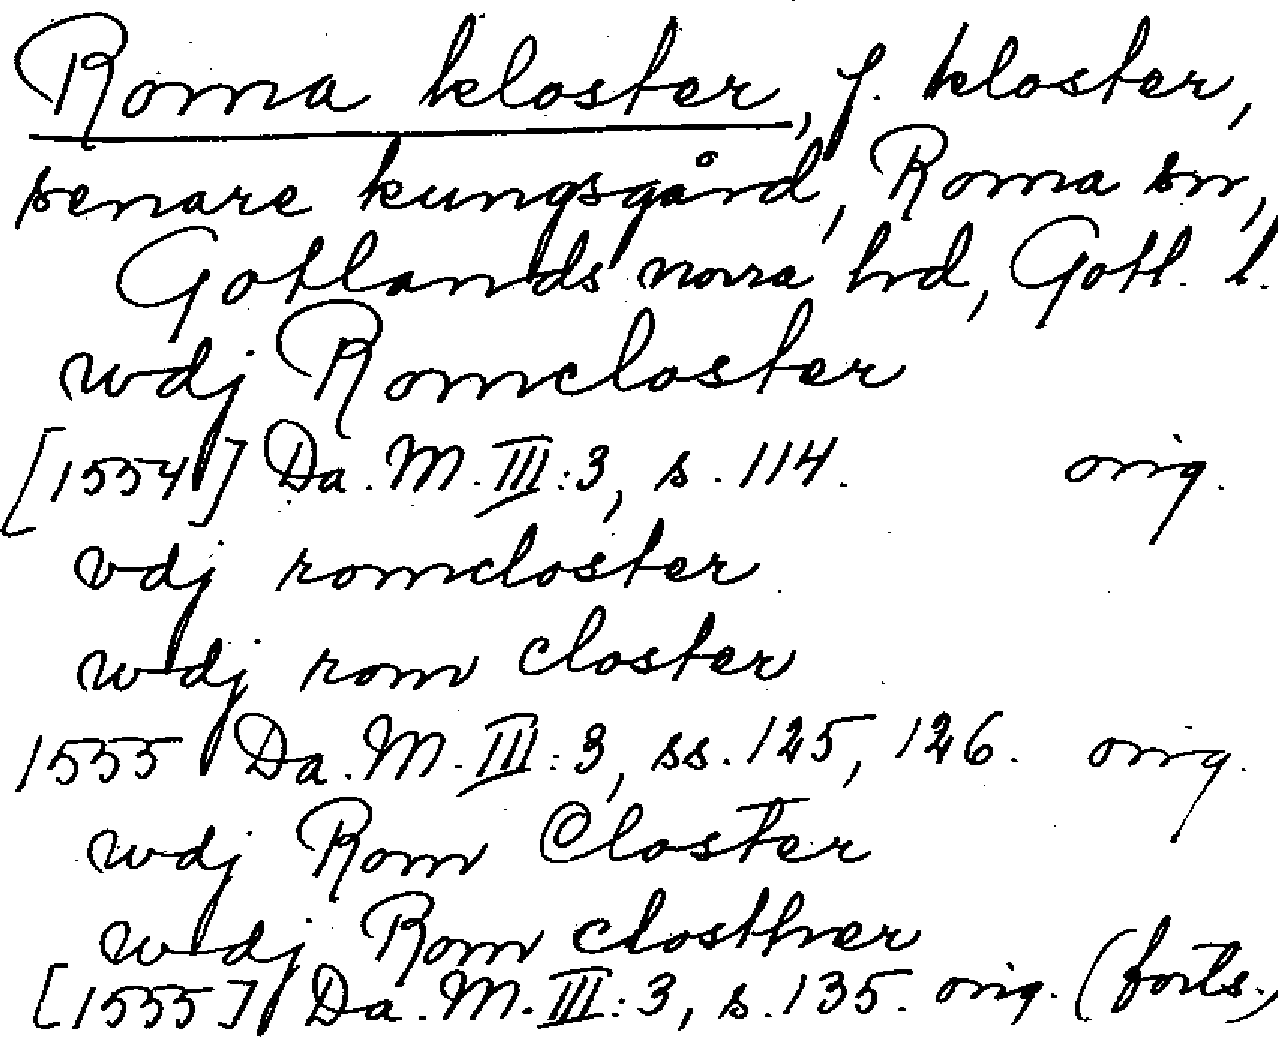 Roma kloster, f. kloster,
senare kungsgård, Roma sn,
Gotlands norra hd, Gotl. l.
wdj Romcloster
[1554] Da. M. III:3, s. 114. orig.
vdj romcloster
wdj rom closter
1555 Da. M. III:3, ss. 125, 126. orig.
wdj Rom Closter
wdj Rom closther
[1555] Da. M. III:3, s. 135. orig. (forts.)